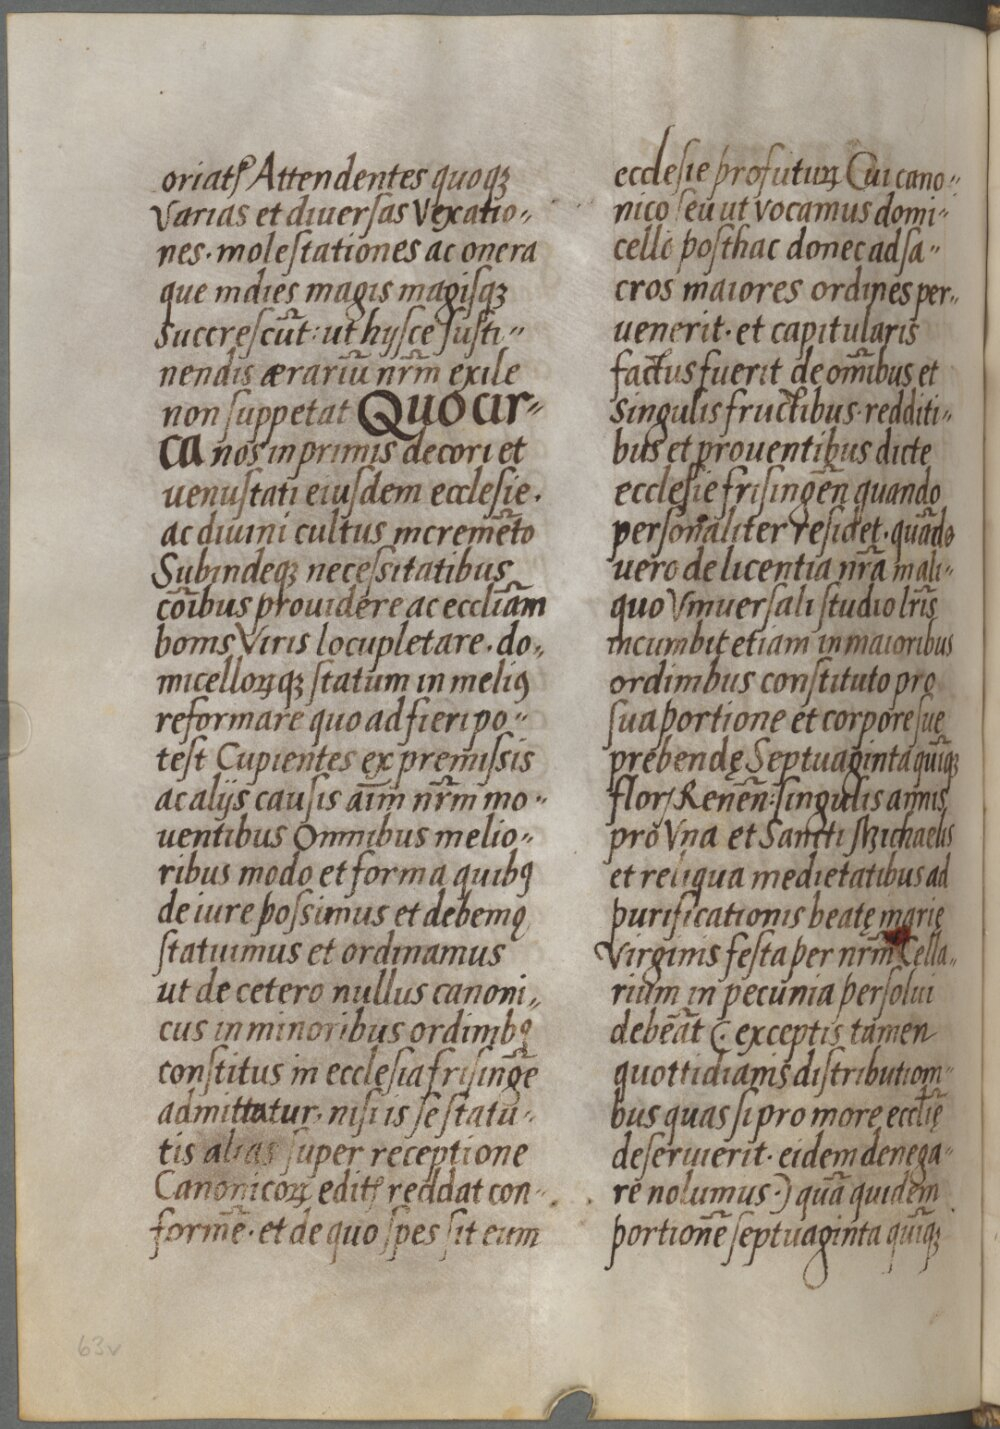 oriatꝭ Attendentes quoqꝫ
Varias et diuerſas Vexatio„
nes · moleſtationes ac onera
que indies magis magiſqꝫ
ſuccreſcūt : ut hyſce ſuſti„
nendis ærariū nr̄m exile
non ſuppetat Quocir„
ca nos inprimis decori et
uenuſtati eiuſdem eccleſie ·
ac diuini cultus incremēto
Subindeqꝫ neceſſitatibus
cōibus prouidere ac eccliā̄m
bonis Viris locupletare · do„
micelloꝝqꝫ ſtatum in meliꝯ
reformare quo ad fieri po„
teſt Cupientes ex premiſſis
ac alijs cauſis aīm nr̄m mo„
uentibus Omnibus melio„
ribus modo et forma quibꝯ
de iure poſſimus et debemꝯ
ſtatuimus et ordinamus
ut de cetero nullus canoni„
cus in minoribus ordinibꝯ
conſtitus in eccleſia friſingē
admittatur · niſi is ſe ſtatu„
tis alias ſuper receptione
Canonicoꝝ editꝭ reddat con„
formē · et de quo ſpes ſit eum
eccleſie profutuꝝ Cui cano„
nico ſeu ut vocamus domi„
cello poſthac donec ad ſa„
cros maiores ordines per„
uenerit · et capitularis
factus fuerit de om̄ibus et
Singulis fructibus · redditi„
bus et prouentibus dicte
eccleſie friſingēn quando
perſonaliter reſidet · quādo
uero de licentia nr̄a in ali„
quo Vniuerſali ſtudio lr̄is
incumbit etiam in maioribus
ordinibus conſtituto pro
ſua portione et corpore ſue
prebendę Septuaginta quīqꝫ
flor̄ / Renēn : ſingulis annis
pro Vna et Sancti Michaelis
et reliqua medietatibus ad
purificationis beatę marię
Virginis feſta per nr̄m Cella„
rium in pecunia perſolui
debeāt (: exceptis tamen
quottidianis diſtribution„
bus quas ſi pro more eccl̄ię
deſeruierit · eidem denega„
re nolumus ·) quā quidem
portionē ſeptuaginta quīqꝫ
63v